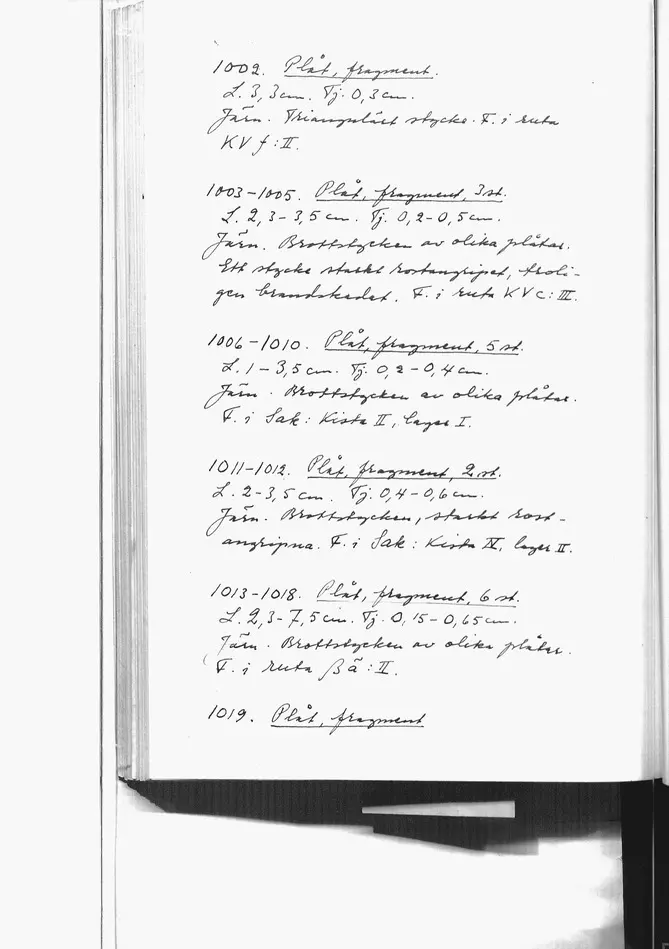 1002. Plåt, fragment.
L. 3,3cm. Tj. 0,3cm.
Järn. Triangulärt stycke. F. i ruta
KV f:II.
1003-1005. Plåt, fragment, 3 st.
L. 2,3-3,5cm. Tj. 0,2-0,5cm.
Järn. Brottstycken av olika plåtar.
Ett stycke starkt rostangripet, troli-
gen brandskadat. F. i ruta KV c:III.
1006-1010. Plåt, fragment, 5 st.
L. 1-3,5cm. Tj. 0,2-0,4cm.
Järn. Brottstycken av olika plåtar.
F. i Sak: Kista II, lager I.
1011-1012. Plåt, fragment, 2 st.
L. 2-3,5cm. Tj. 0,4-0,6cm.
Järn. Brottstycken, starkt rost-
angripna. F. i Sak: Kista IV, lager II.
1013-1018. Plåt, fragment, 6 st.
L. 2,3-7,5cm. Tj. 0,15-0,65cm.
Järn. Brottstycken av olika plåtar.
F. i ruta β ä:II.
1019. Plåt, fragment